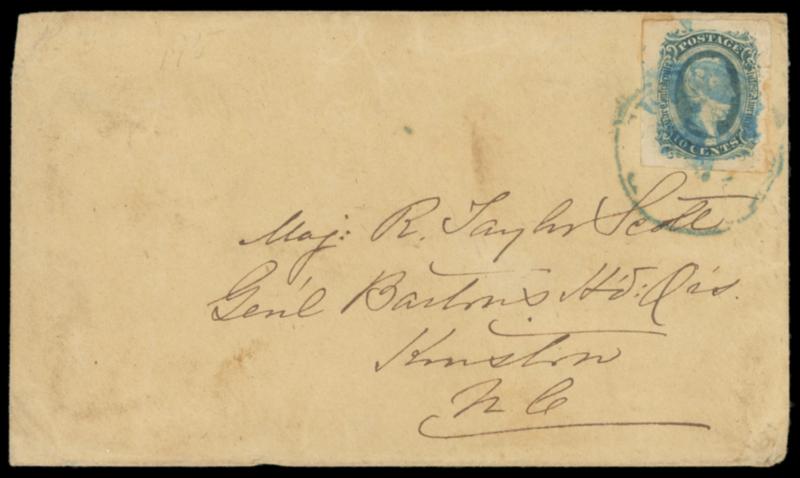 175
POSTAGE
CENTS
Maj: R. Taylor Scott
Gen'l Barton's Hd: Qrs.
Kinston
N C